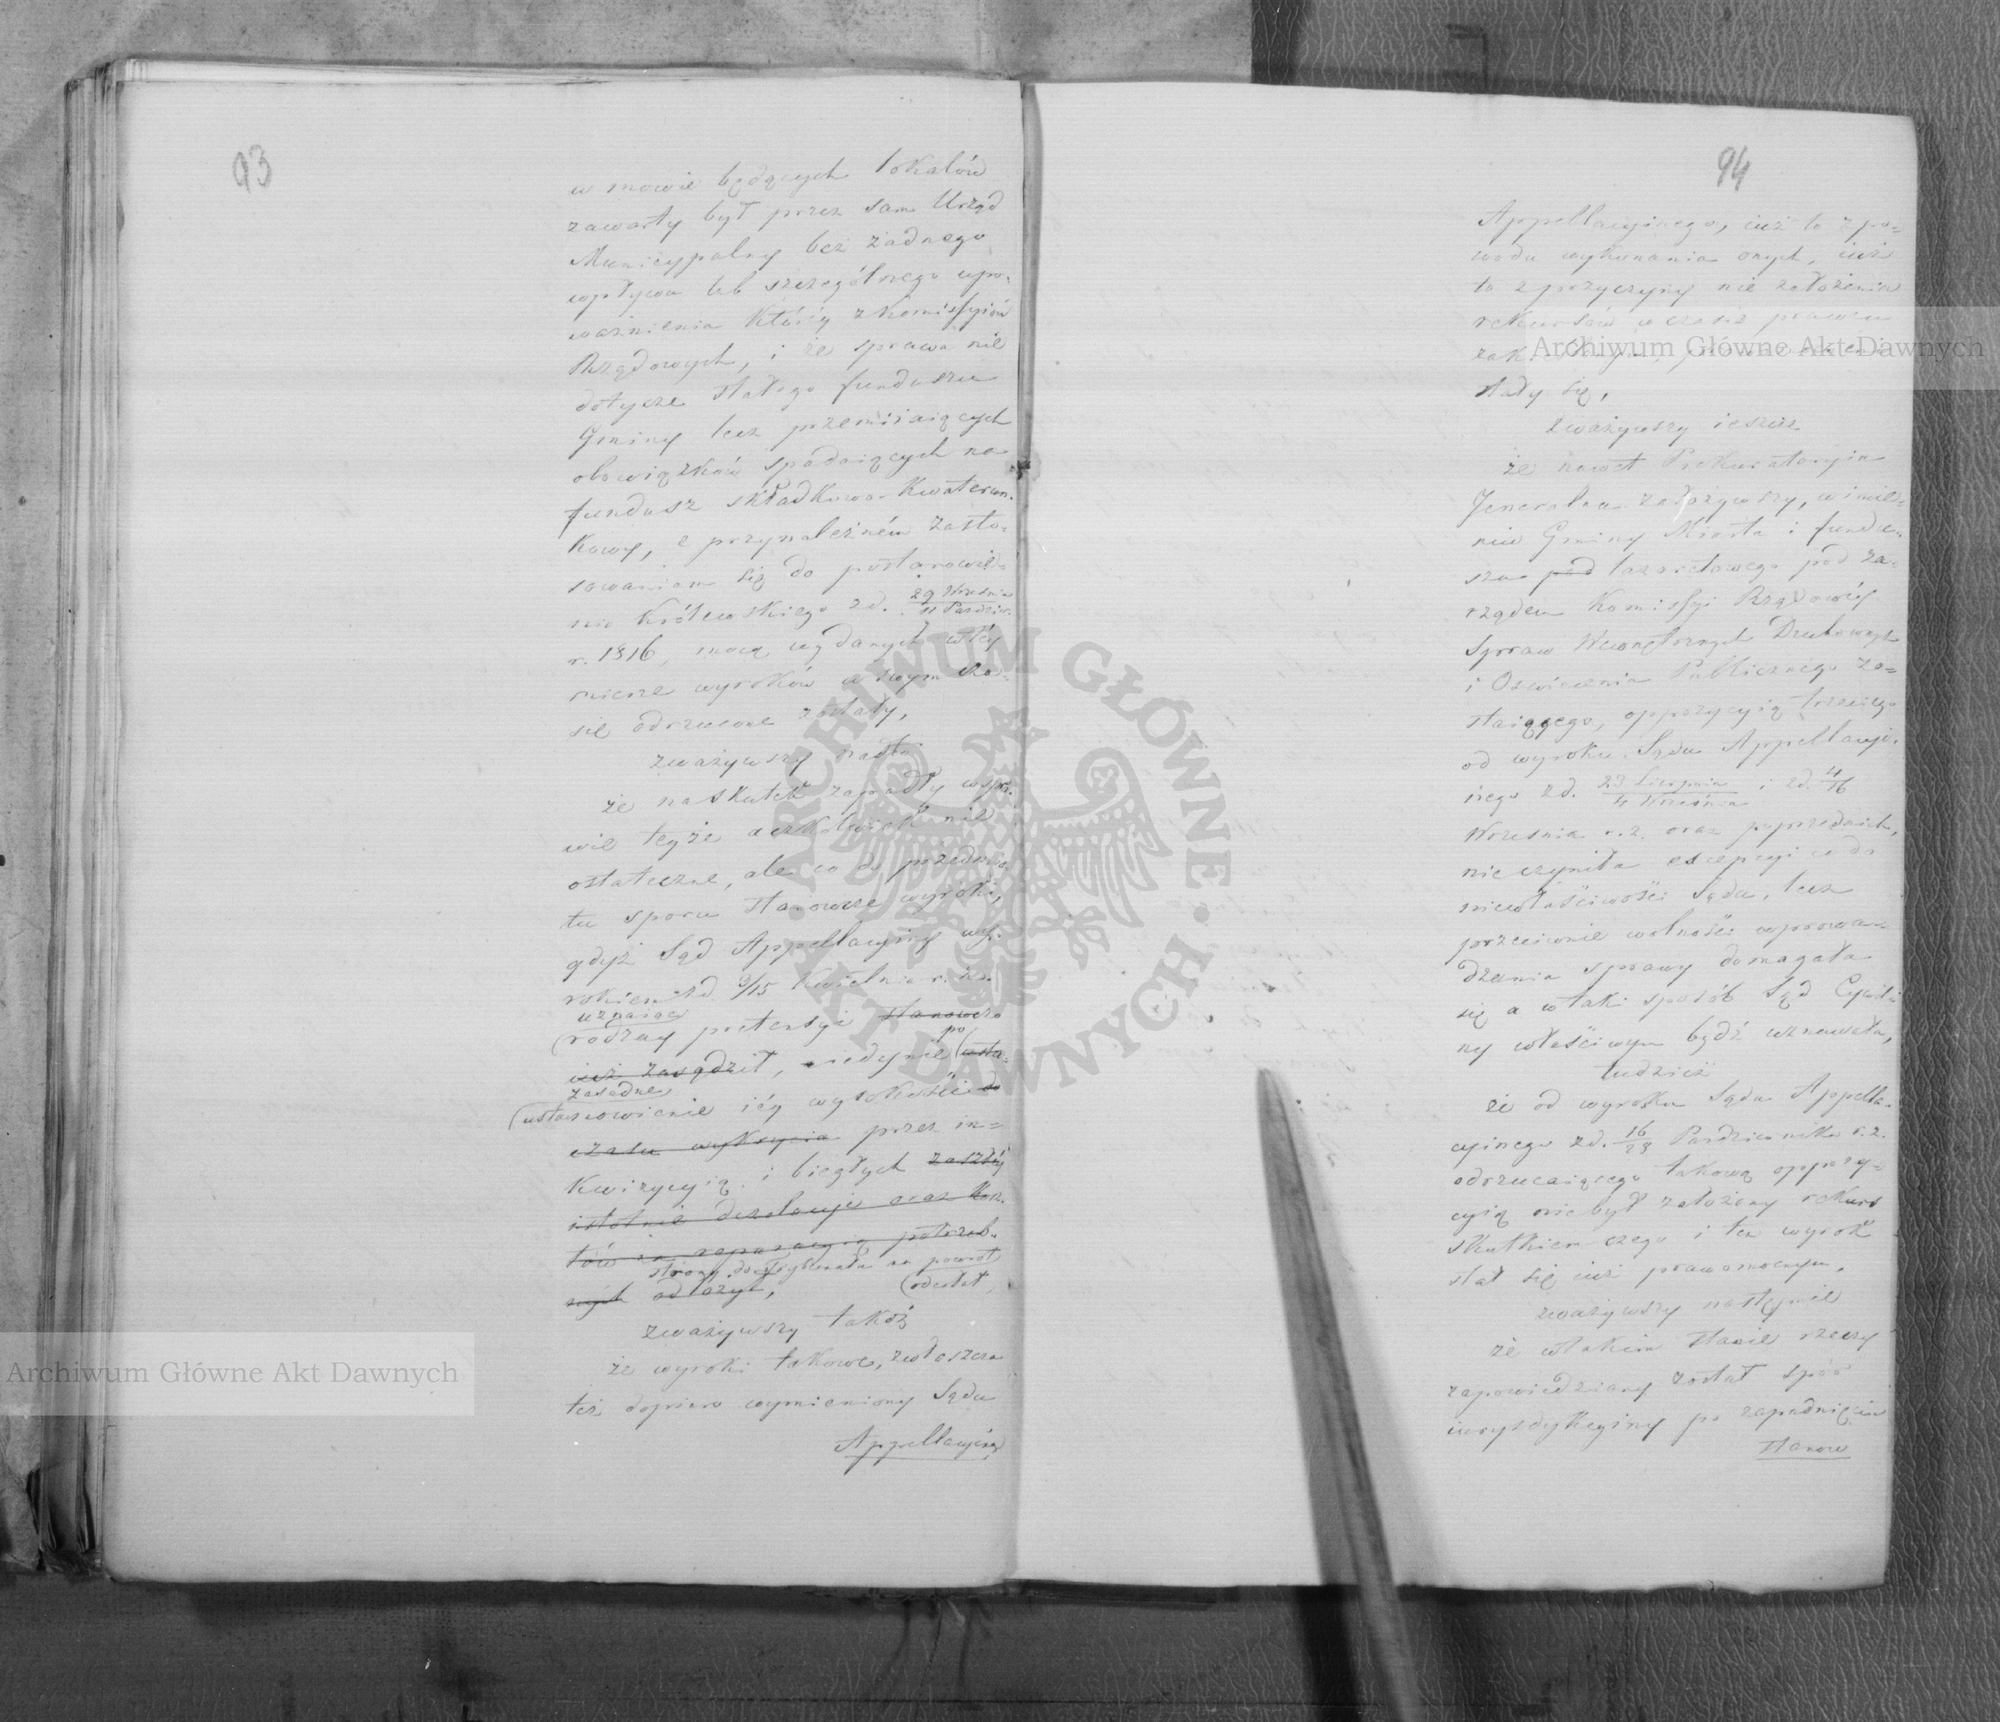 93
w mowie będących lokalów
zawarty był przez sam Urząd
Municypalny bez żadnego
wpływu lub szczególnego upo-
ważnienia któréy z kommissyiów
Rządowych, i że sprawa nie
dotycze stałego funduszu
Gminy lecz przemiiaiących
obowiązków spadaiących na
fundusz składkowo-kwaterun-
kowy, a przynależném zasto-
sowaniem się do postanowie-
nia Królewskiego z d. 29 Września / 11 Paździer.
r. 1816, mocą wydanych w téy
mierze wyroków w swym cza-
sie odrzucone zostały,
zważywszy nadto
że na skutek zapadły w spra-
wie teyże aczkolwiek nie
ostateczne, ale co do przedmio-
tu sporu stanowcze wyroki,
gdyż Sąd Appellacyiny wy-
rokiem z d. 3/15 Kwietnia r.
uznaiąc
(rodzay pretensyi stanowczo
po
iuż zasądził, iedynie (usta-
zasadne
(ustanowienie iéy wysokości do
czasu wykrycia przez in-
kwizycyią i biegłych zaszłéy
istotnie dezolacyi oraz kosz-
tów na reparacyią potrzeb-
strony do Trybunału na powrót
nych odłożył, (odesłał,
zważywszy takoż
że wyroki takowe, zwłaszcza
też dopiero wymieniony Sądu
Appellacyine
94
Appellacyinego, iuż to z po-
wodu wykonania onych, iuż
to z przyczyny nie założenia
rekursów w czasie prawem
stały się,
zważywszy ieszcze
że nawet Prokuratoryia
Jeneralna założywszy, w imie-
niu Gminy Miasta i fundu-
szu pod lazaretowego pod za-
rządem Kommissyi Rządowéy
Spraw Wewnętrznych Duchownych
i Oświecenia Publicznego zo-
staiącego, oppozycyią trzeciego
od wyroku Sądu Appellacyi-
nego z d. 23 Sierpnia / 4 Września i z d. 4/16
Września r. z. oraz poprzednich,
nie czyniła excepcyi co do
niewłaściwości Sądu, lecz
przeciwnie wolności wprowa-
dzenia sprawy domagała
się a w taki sposób Sąd Cywil-
ny właściwym bydź uznawała,
tudzież
że od wyroku Sądu Appella-
cyinego z d. 16/28 Października r. z.
odrzucaiącego takową oppozy-
cyią nie był założony rekurs
skutkiem czego i ten wyrok
stał się iuż prawomocnym,
zważywszy następnie
że w takim stanie rzeczy
zapowiedziany został spór
iurysdykcyiny po zapadnięciu
stanow
ARCHIWUM GŁÓWNE AKT DAWNYCH
Archiwum Główne Akt Dawnych
Archiwum Główne Akt Dawnych